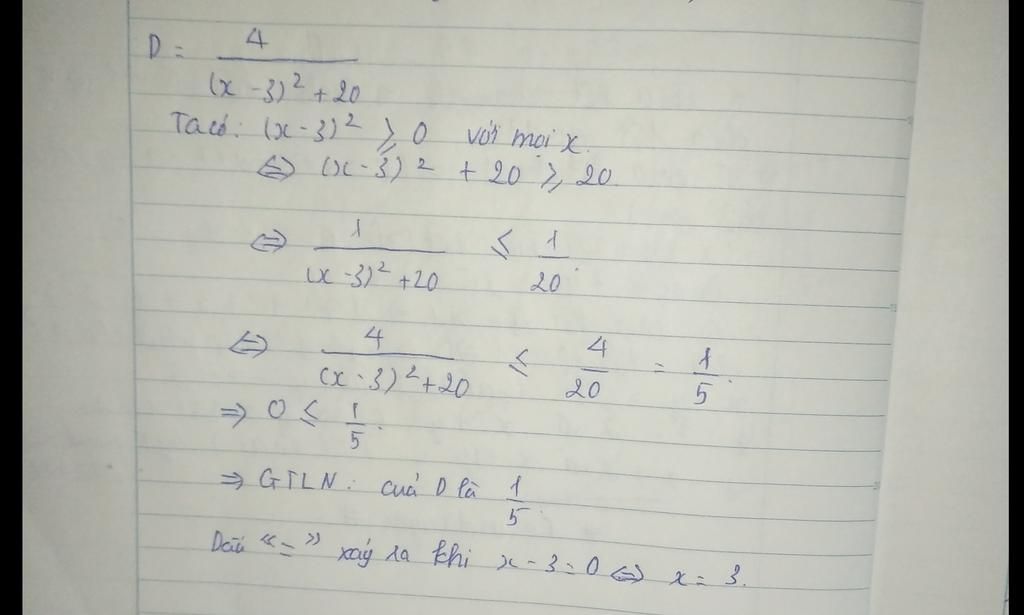 D = 4/((x - 3)² + 20)
Ta có: (x - 3)² ≥ 0 với mọi x.
⇔ (x - 3)² + 20 ≥ 20.
⇔ 1/((x - 3)² + 20) ≤ 1/20.
⇔ 4/((x - 3)² + 20) ≤ 4/20 = 1/5.
⇒ 0 ≤ 1/5.
⇒ GTLN: cuả D là 1/5.
Dấu "=" xảy ra khi x - 3 = 0 ⇔ x = 3.